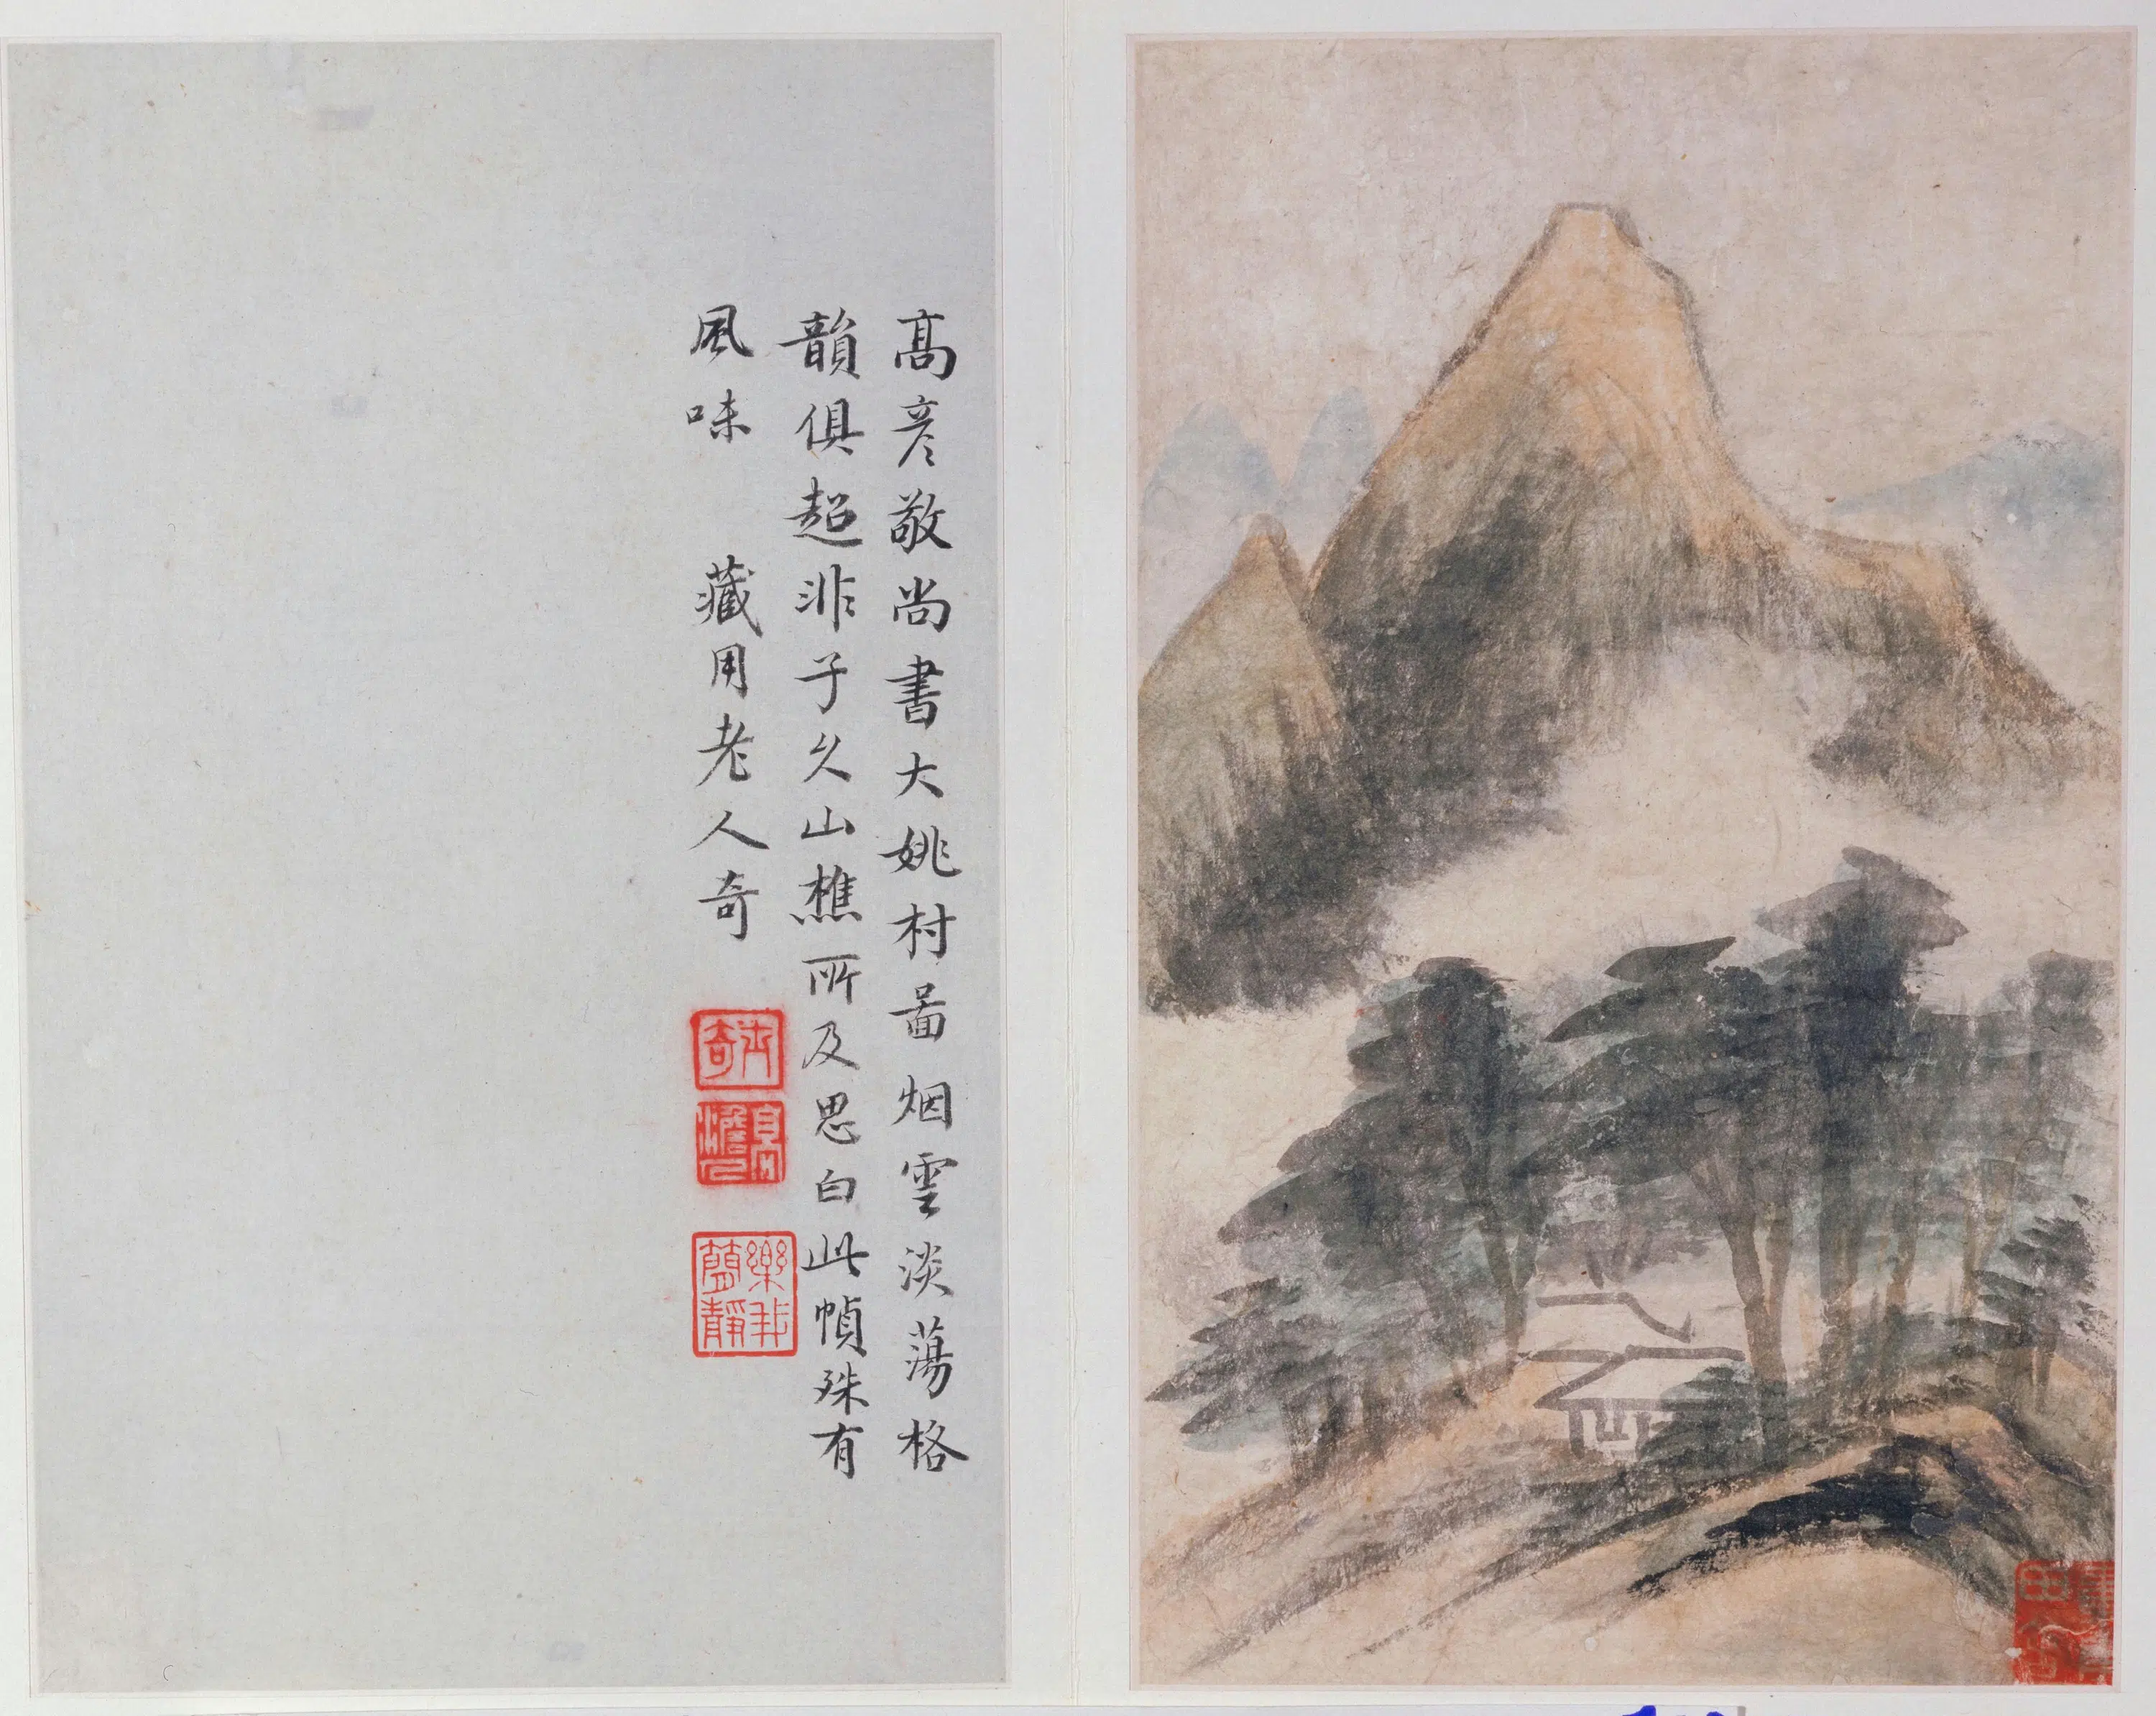 高彦敬尚書大姚村啚烟雲淡蕩格
韻俱超非子久山樵所及思白此幀殊有
風味 藏用老人奇
高
澹
樂非
簋靜